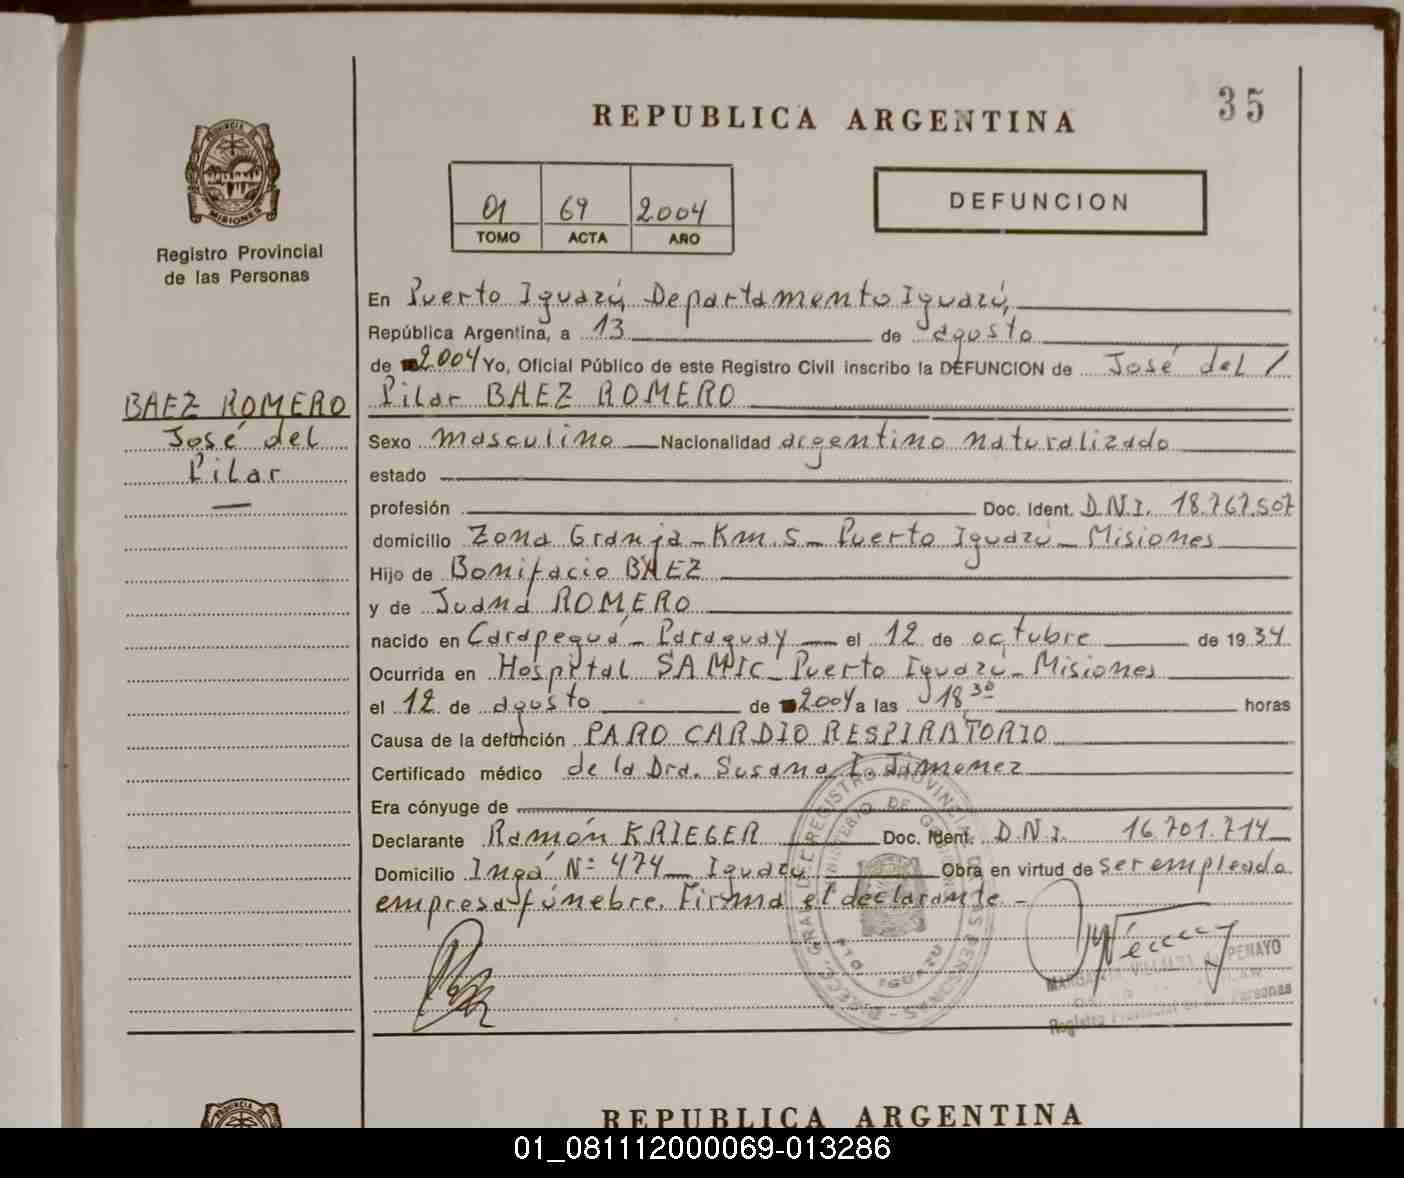 35
REPUBLICA ARGENTINA
PROVINCIA DE
MISIONES
Registro Provincial
de las Personas
01 69 2004
TOMO ACTA AÑO
DEFUNCION
BAEZ ROMERO
José del
Pilar
En Puerto Iguazú, Departamento Iguazú,
República Argentina, a 13 de agosto
de 2004 Yo, Oficial Público de este Registro Civil inscribo la DEFUNCION de José del /
Pilar BAEZ ROMERO
Sexo masculino Nacionalidad argentino naturalizado
estado
profesión Doc. Ident. D.N.I. 18.767.507
domicilio Zona Granja - Km. 5 - Puerto Iguazú - Misiones
Hijo de Bonifacio BAEZ
y de Juana ROMERO
nacido en Carapeguá - Paraguay - el 12 de octubre de 1934
Ocurrida en Hospital SAMIC - Puerto Iguazú - Misiones
el 12 de agosto de 2004 a las 18 30 horas
Causa de la defunción PARO CARDIO RESPIRATORIO
Certificado médico de la Dra. Susana I. Jimenez
Era cónyuge de
Declarante Ramón KRIEGER Doc. Ident. D.N.I. 16.701.714
Domicilio Ingá Nº 474 - Iguazú Obra en virtud de ser empleado
empresa fúnebre. Firma el declarante -
VILLALBA PENAYO
Registro Provincial de las Personas
PTO IGUAZU
REPUBLICA ARGENTINA
01_081112000069-013286